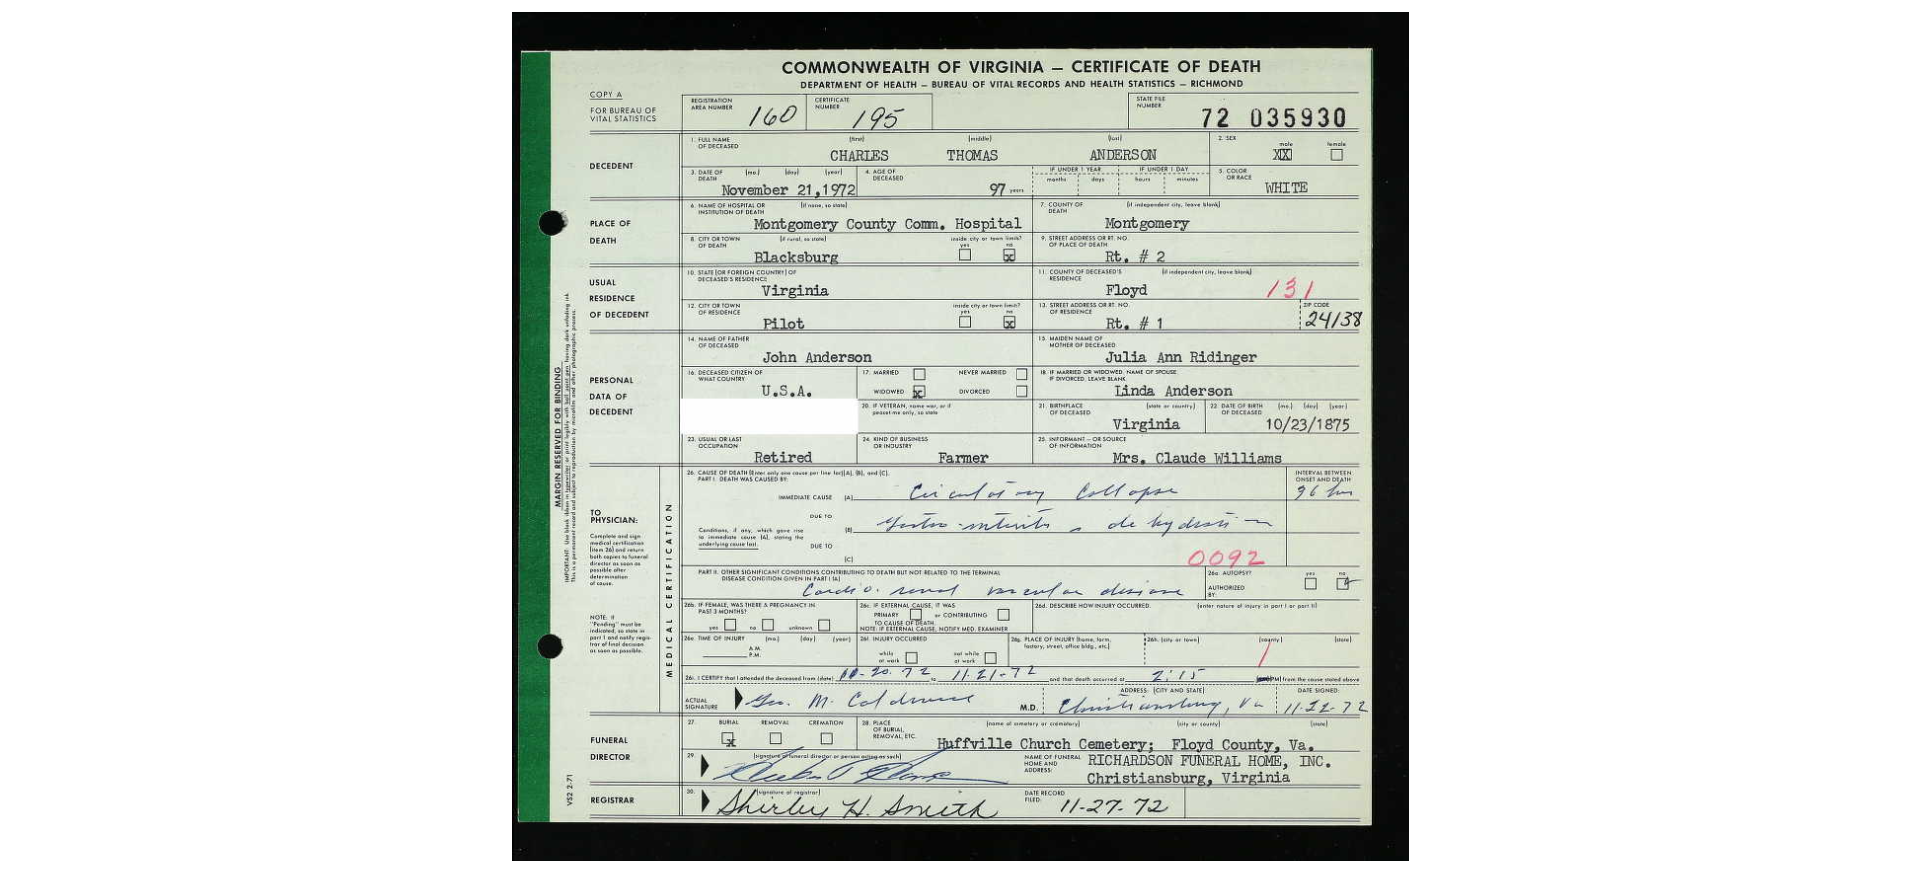 COMMONWEALTH OF VIRGINIA — CERTIFICATE OF DEATH
DEPARTMENT OF HEALTH — BUREAU OF VITAL RECORDS AND HEALTH STATISTICS — RICHMOND
COPY A
FOR BUREAU OF VITAL STATISTICS
REGISTRATION AREA NUMBER 160 CERTIFICATE NUMBER 195 STATE FILE NUMBER 72 035930
DECEDENT
1. FULL NAME OF DECEASED (first) (middle) (last) 2. SEX male female
CHARLES THOMAS ANDERSON XX
3. DATE OF DEATH (mo.) (day) (year) 4. AGE OF DECEASED IF UNDER 1 YEAR months days IF UNDER 1 DAY hours minutes 5. COLOR OR RACE
November 21,1972 97 years WHITE
PLACE OF DEATH
6. NAME OF HOSPITAL OR INSTITUTION OF DEATH (if none, so state) 7. COUNTY OF DEATH (if independent city, leave blank)
Montgomery County Comm. Hospital Montgomery
8. CITY OR TOWN OF DEATH (if rural, so state) inside city or town limits? yes no 9. STREET ADDRESS OR RT. NO. OF PLACE OF DEATH
Blacksburg x Rt. # 2
USUAL RESIDENCE OF DECEDENT
10. STATE (OR FOREIGN COUNTRY) OF DECEASED'S RESIDENCE 11. COUNTY OF DECEASED'S RESIDENCE (if independent city, leave blank)
Virginia Floyd 131
12. CITY OR TOWN OF RESIDENCE inside city or town limits? yes no 13. STREET ADDRESS OR RT. NO. OF RESIDENCE ZIP CODE
Pilot x Rt. # 1 24138
PERSONAL DATA OF DECEDENT
14. NAME OF FATHER OF DECEASED 15. MAIDEN NAME OF MOTHER OF DECEASED
John Anderson Julia Ann Ridinger
16. DECEASED CITIZEN OF WHAT COUNTRY 17. MARRIED NEVER MARRIED WIDOWED x DIVORCED 18. IF MARRIED OR WIDOWED, NAME OF SPOUSE IF DIVORCED, LEAVE BLANK
U.S.A. Linda Anderson
20. IF VETERAN, name war, or if peacetime only, so state 21. BIRTHPLACE OF DECEASED (state or country) 22. DATE OF BIRTH OF DECEASED (mo.) (day) (year)
Virginia 10/23/1875
23. USUAL OR LAST OCCUPATION 24. KIND OF BUSINESS OR INDUSTRY 25. INFORMANT — OR SOURCE OF INFORMATION
Retired Farmer Mrs. Claude Williams
MARGIN RESERVED FOR BINDING
MEDICAL CERTIFICATION
TO PHYSICIAN:
Complete and sign medical certification (item 26) and return both copies to funeral director as soon as possible after determination of cause.
NOTE: If "Pending" must be indicated, so state in part I and notify registrar of final decision as soon as possible.
26. CAUSE OF DEATH (Enter only one cause per line for (A), (B), and (C).
PART I. DEATH WAS CAUSED BY: INTERVAL BETWEEN ONSET AND DEATH
IMMEDIATE CAUSE (A) Circulatory Collapse 96 hrs
DUE TO
(B) Gastro-enteritis dehydration
Conditions, if any, which gave rise to immediate cause (A), stating the underlying cause last.
DUE TO
(C) 0092
PART II. OTHER SIGNIFICANT CONDITIONS CONTRIBUTING TO DEATH BUT NOT RELATED TO THE TERMINAL DISEASE CONDITION GIVEN IN PART I (A)
Cardio renal vascular disease
26a. AUTOPSY? yes no
AUTHORIZED BY:
26b. IF FEMALE, WAS THERE A PREGNANCY IN PAST 3 MONTHS? yes no unknown
26c. IF EXTERNAL CAUSE, IT WAS PRIMARY or CONTRIBUTING TO CAUSE OF DEATH.
NOTE: IF EXTERNAL CAUSE, NOTIFY MED. EXAMINER
26d. DESCRIBE HOW INJURY OCCURRED. (enter nature of injury in part I or part II)
26e. TIME OF INJURY (mo.) (day) (year) A.M. P.M.
26f. INJURY OCCURRED while at work not while at work
26g. PLACE OF INJURY (home, farm, factory, street, office bldg., etc.)
26h. (city or town) (county) (state)
26i. I CERTIFY that I attended the deceased from (date) to 11-21-72 and that death occurred at 2:15 PM from the cause stated above
ACTUAL SIGNATURE Geo. M. Caldwell M.D. ADDRESS: (CITY AND STATE) Christiansburg, Va DATE SIGNED: 11-22-72
FUNERAL DIRECTOR
27. BURIAL x REMOVAL CREMATION 28. PLACE OF BURIAL, REMOVAL, ETC. (name of cemetery or crematory) (city or county) (state)
Huffville Church Cemetery; Floyd County, Va.
29. (signature of funeral director or person acting as such) NAME OF FUNERAL HOME AND ADDRESS: RICHARDSON FUNERAL HOME, INC.
Christiansburg, Virginia
REGISTRAR
30. (signature of registrar) Shirley H. Smith DATE RECORD FILED: 11-27-72
VS2 2-71